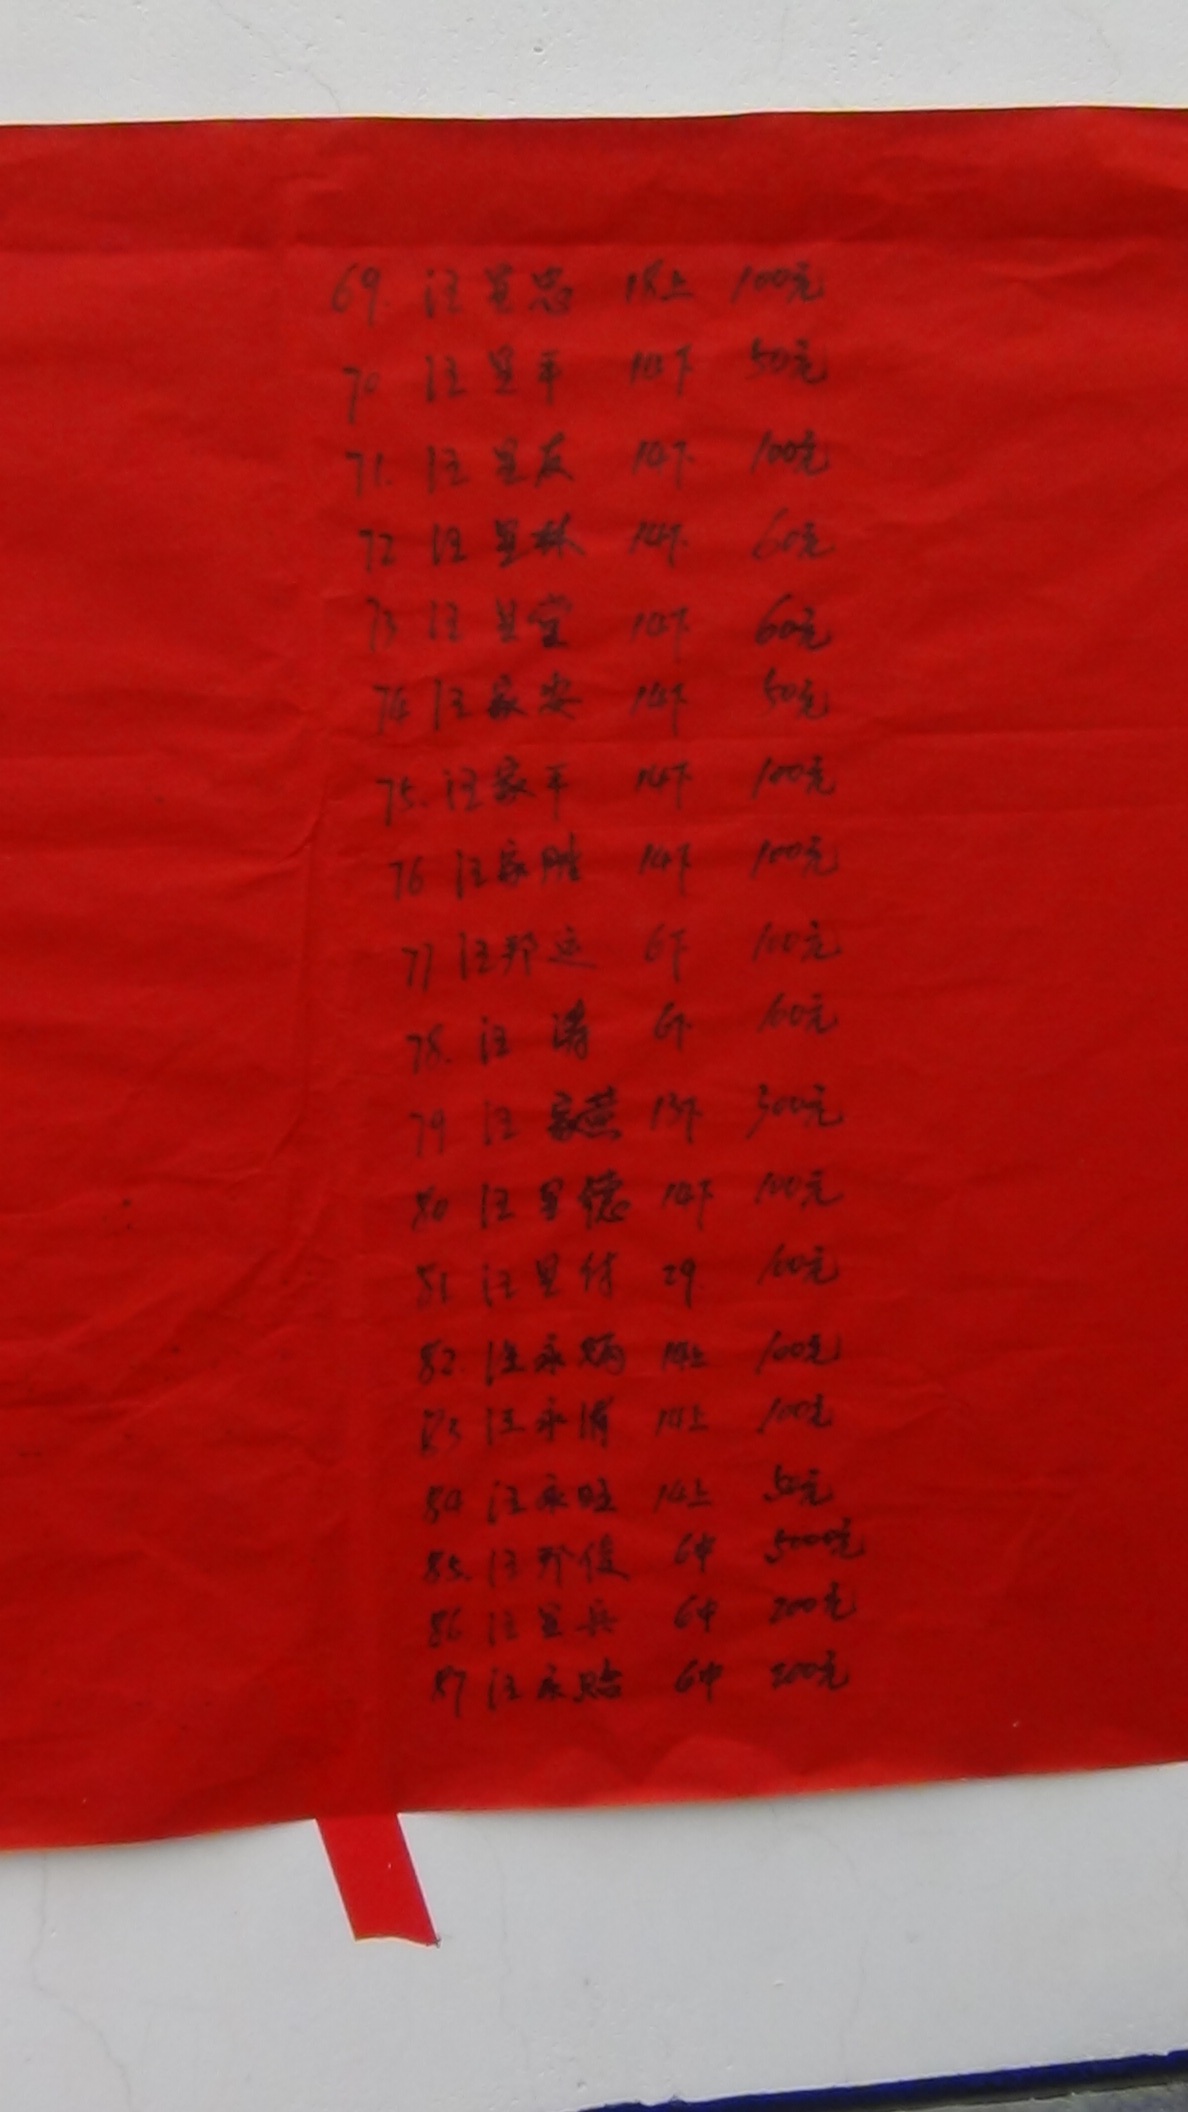 69. 汪昱忠 18上 100元
70 汪昱平 14下 50元
71. 汪昱友 14下 100元
72 汪昱林 14下 60元
73 汪昱堂 14下 60元
74 汪家安 14下 50元
75. 汪家平 14下 100元
76 汪家胜 14下 100元
77 汪邦运 6下 100元
78. 汪涛 6下
79 汪家燕 13下 300元
80 汪昱德 14下 100元
81 汪昱 29
82. 汪永炳 14上 100元
83 汪永清 14上 100元
84 汪永旺 14上 50元
85. 汪邦俊 6中 5000元
86 汪昱兵 6中 200元
87 汪永贻 6中 200元